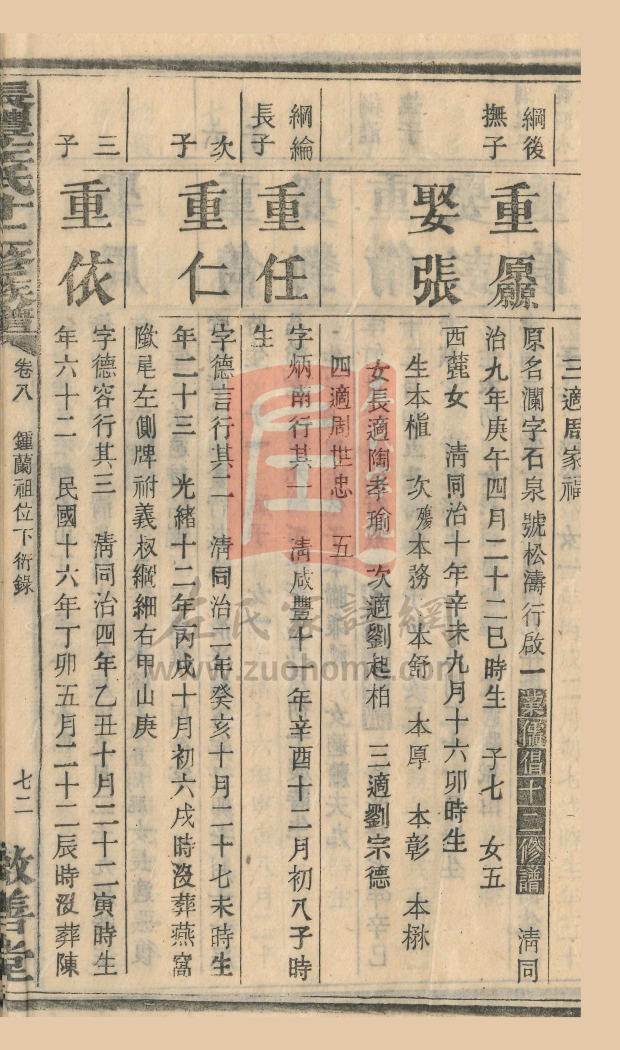 三適周家福
綱後
撫子
重愿
原名瀾字石泉 號松濤行啟一 業儒督十二修譜 清同
治九年庚午四月二十二巳時生 子七 女五
娶張
西麓女 清同治十年辛未九月十六卯時生
生本楨 次殤本務 本舒 本厚 本彰 本楙
女長適陶孝瑜 次適劉起柏 三適劉宗德
四適周世忠 五
綱綸
長子
重任
字炳南行其一 清咸豐十一年辛酉十二月初八子時
生
次
子
重仁
字德言行其二 清同治二年癸亥十月二十七未時生
年二十三 光緒十二年丙戌十月初六戌時沒葬燕窩
墩尾左側牌祔義叔綱細右甲山庚
三
子
重依
字德容行其三 清同治四年乙丑十月二十二寅時生
年六十二 民國十六年丁卯五月二十二辰時沒葬陳
長澧左氏十二修族譜
卷八 鍾蘭祖位下衍錄
七二
敦善堂
左氏家譜網
www.zuohome.com